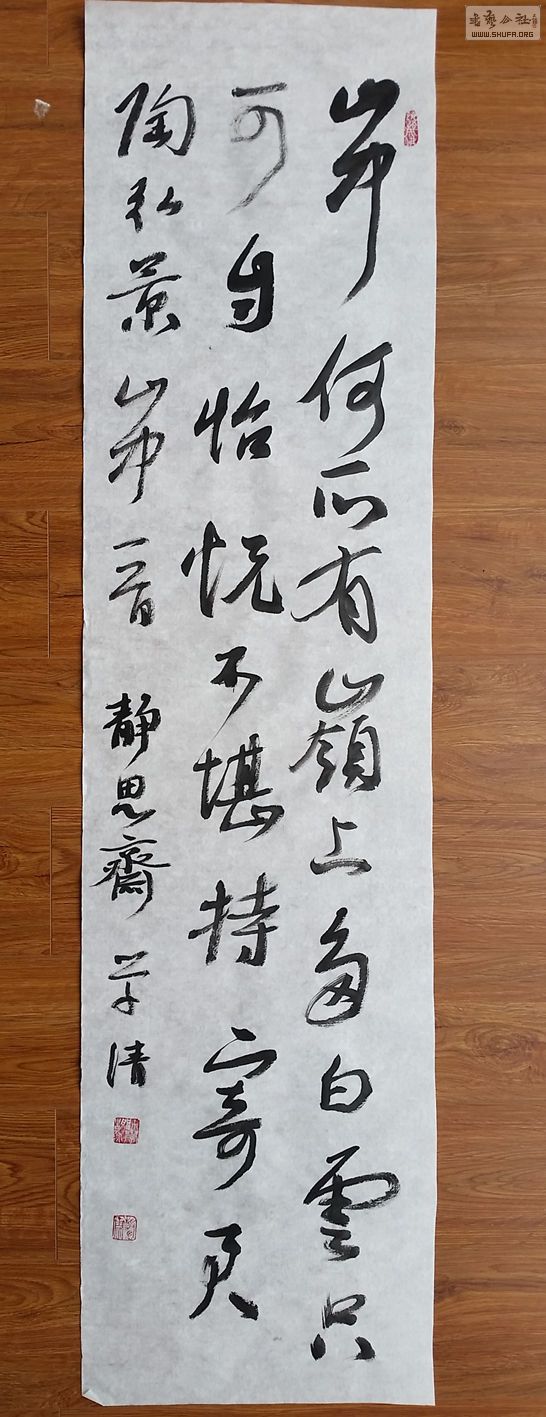 山中何所有嶺上多白雲只
可自怡悦不堪持寄君
陶弘景山中一首 静思齋 学清
書藝公社
WWW.SHUFA.ORG